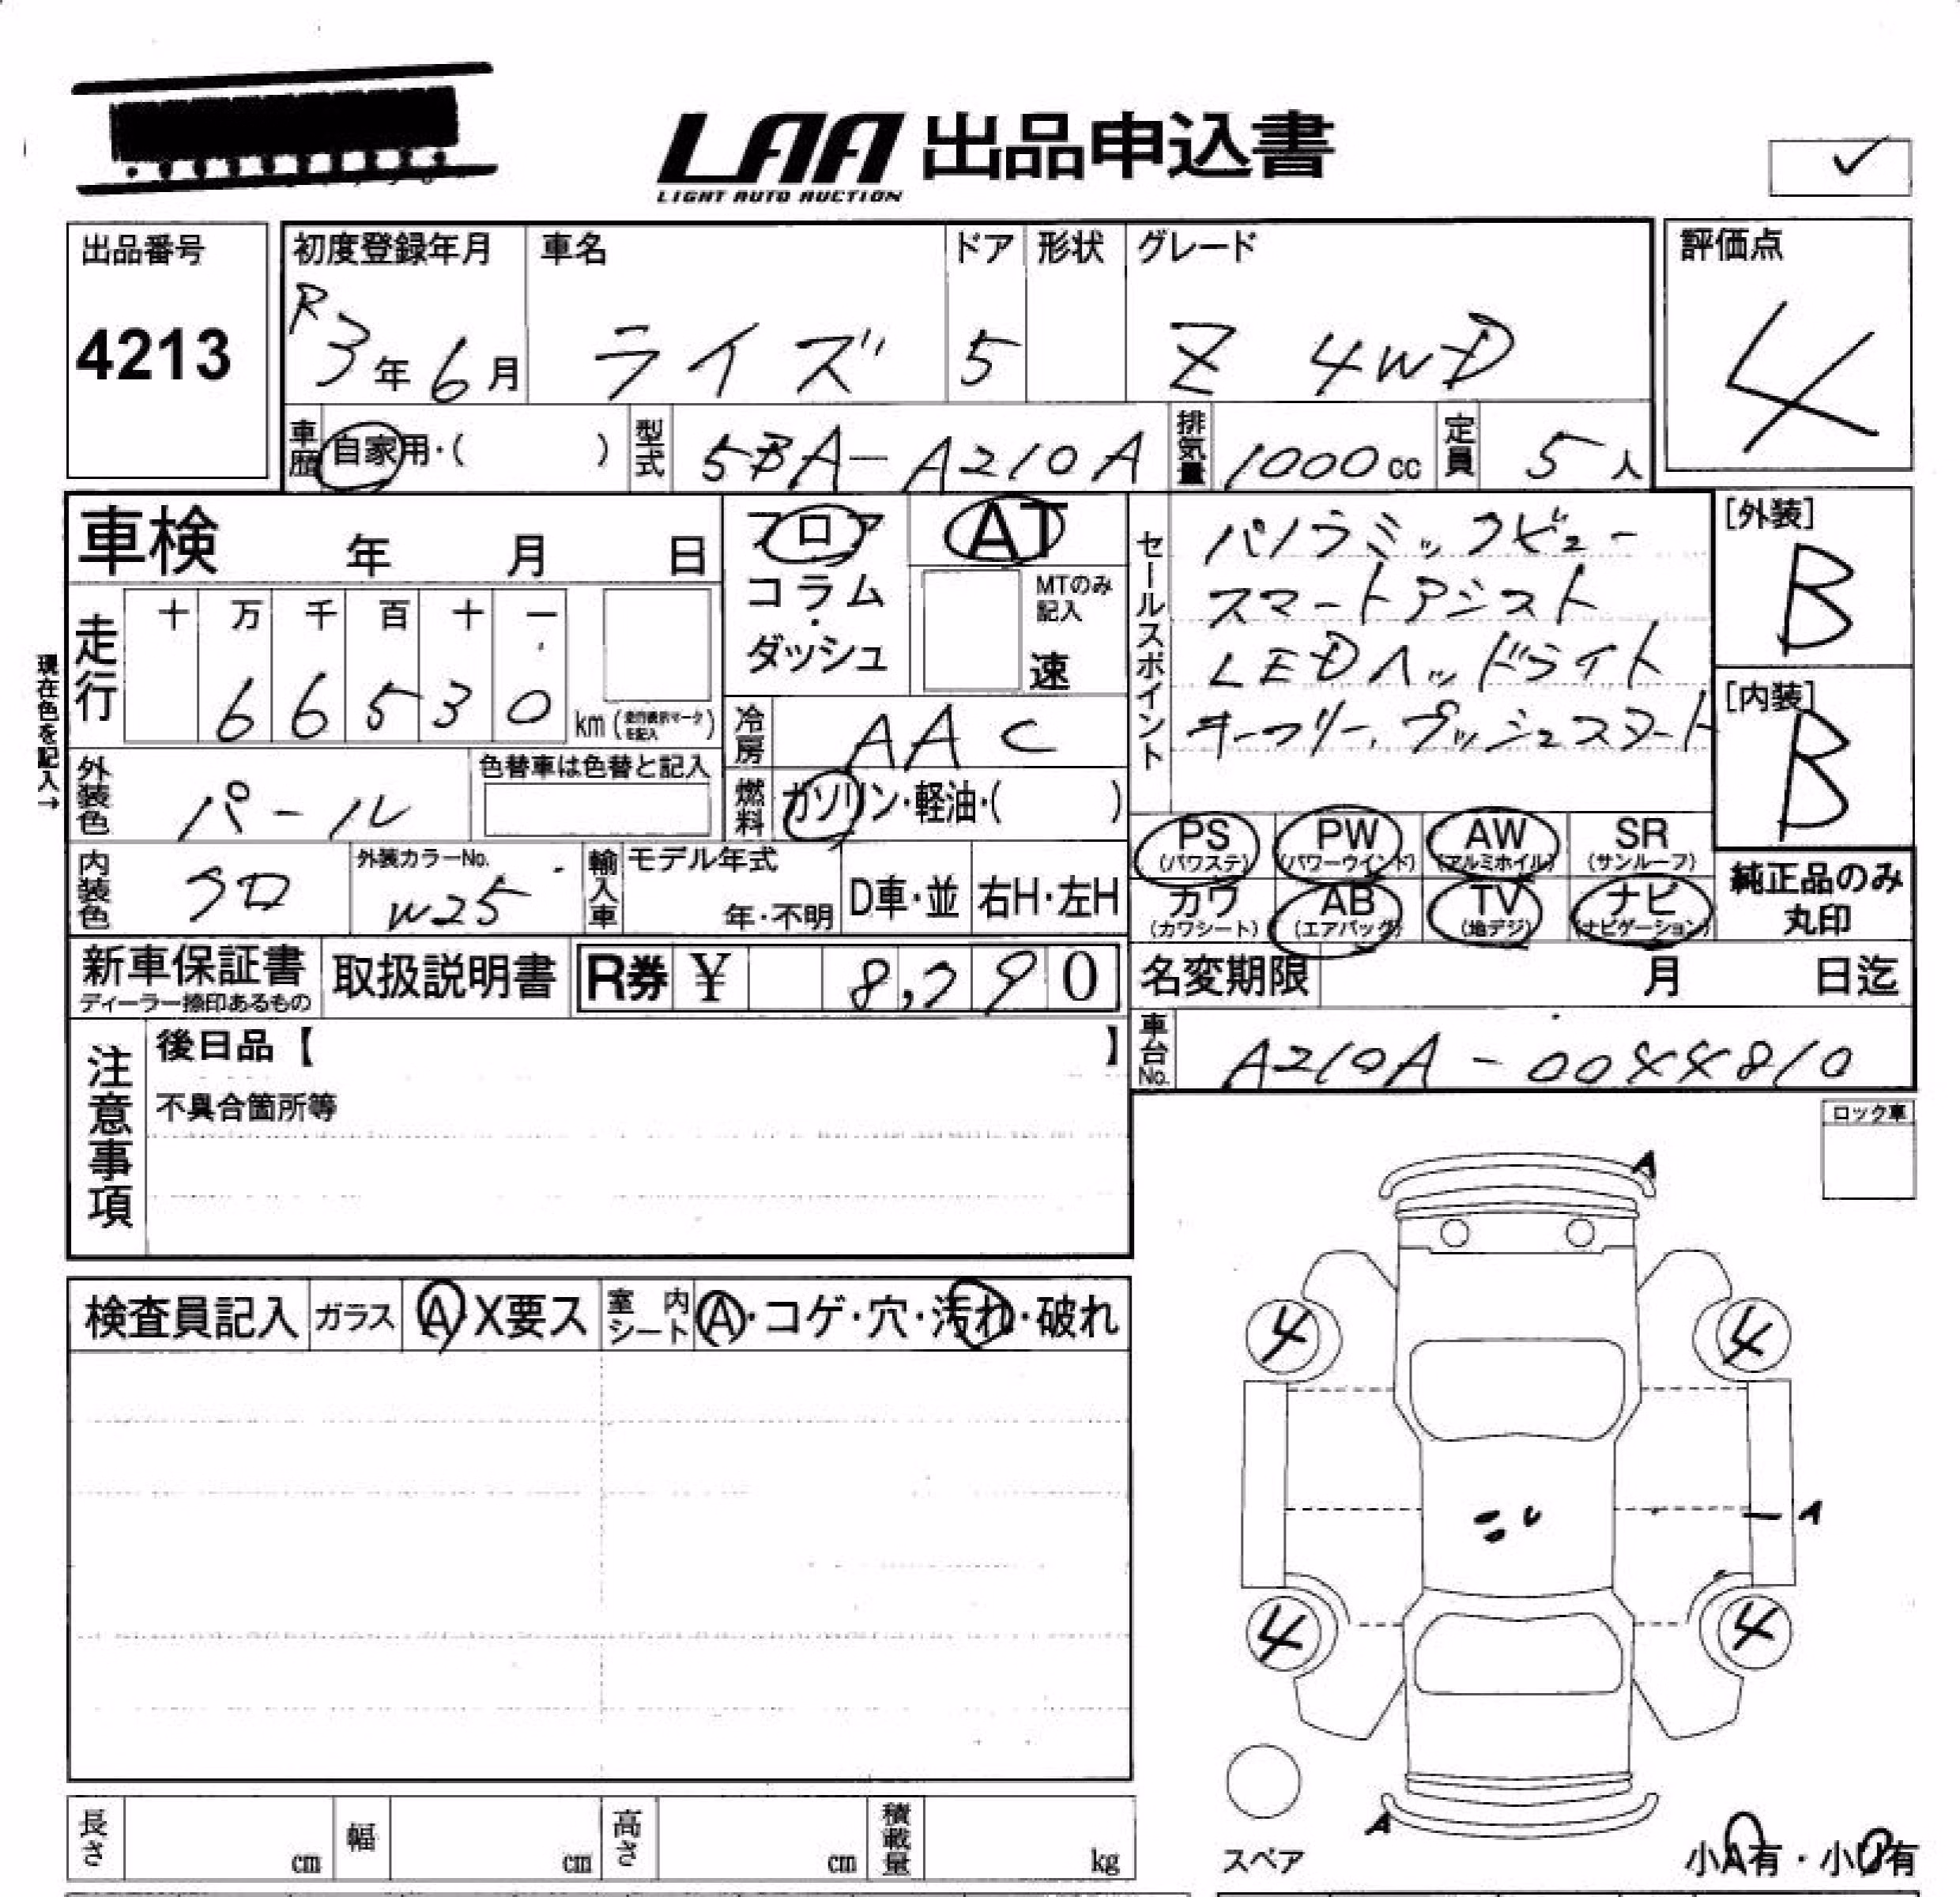 LAA 出品申込書
LIGHT AUTO AUCTION
出品番号
4213
初度登録年月
R3年6月
車名
ライズ
ドア
5
形状
グレード
Z 4WD
評価点
4
車歴
自家用・( )
型式
5BA-A210A
排気量
1000cc
定員
5人
車検 年 月 日
フロア
コラム
・
ダッシュ
AT
MTのみ
記入
速
セールスポイント
パノラミックビュー
スマートアシスト
LEDヘッドライト
キーフリー、プッシュスタート
[外装]
B
[内装]
B
現在色を記入→
走行
十 万 千 百 十 一
6 6 5 3 0
km
冷房
AAC
外装色
パール
色替車は色替と記入
燃料
ガソリン・軽油・( )
PS (パワステ)
PW (パワーウインド)
AW (アルミホイル)
SR (サンルーフ)
カワ (カワシート)
AB (エアバッグ)
TV (地デジ)
ナビ (ナビゲーション)
純正品のみ
丸印
内装色
クロ
外装カラーNo.
W25
輸入車
モデル年式
年・不明
D車・並
右H・左H
新車保証書
ディーラー捺印あるもの
取扱説明書
R券 ¥ 8,290
名変期限 月 日迄
車台No.
A210A-0044810
注意事項
後日品【 】
不具合箇所等
ロック車
A
検査員記入
ガラス
A X要ス
室内
シート
A・コゲ・穴・汚れ・破れ
4 4
A
4 4
A
長さ cm
幅 cm
高さ cm
積載量 kg
スペア
小A有・小U有